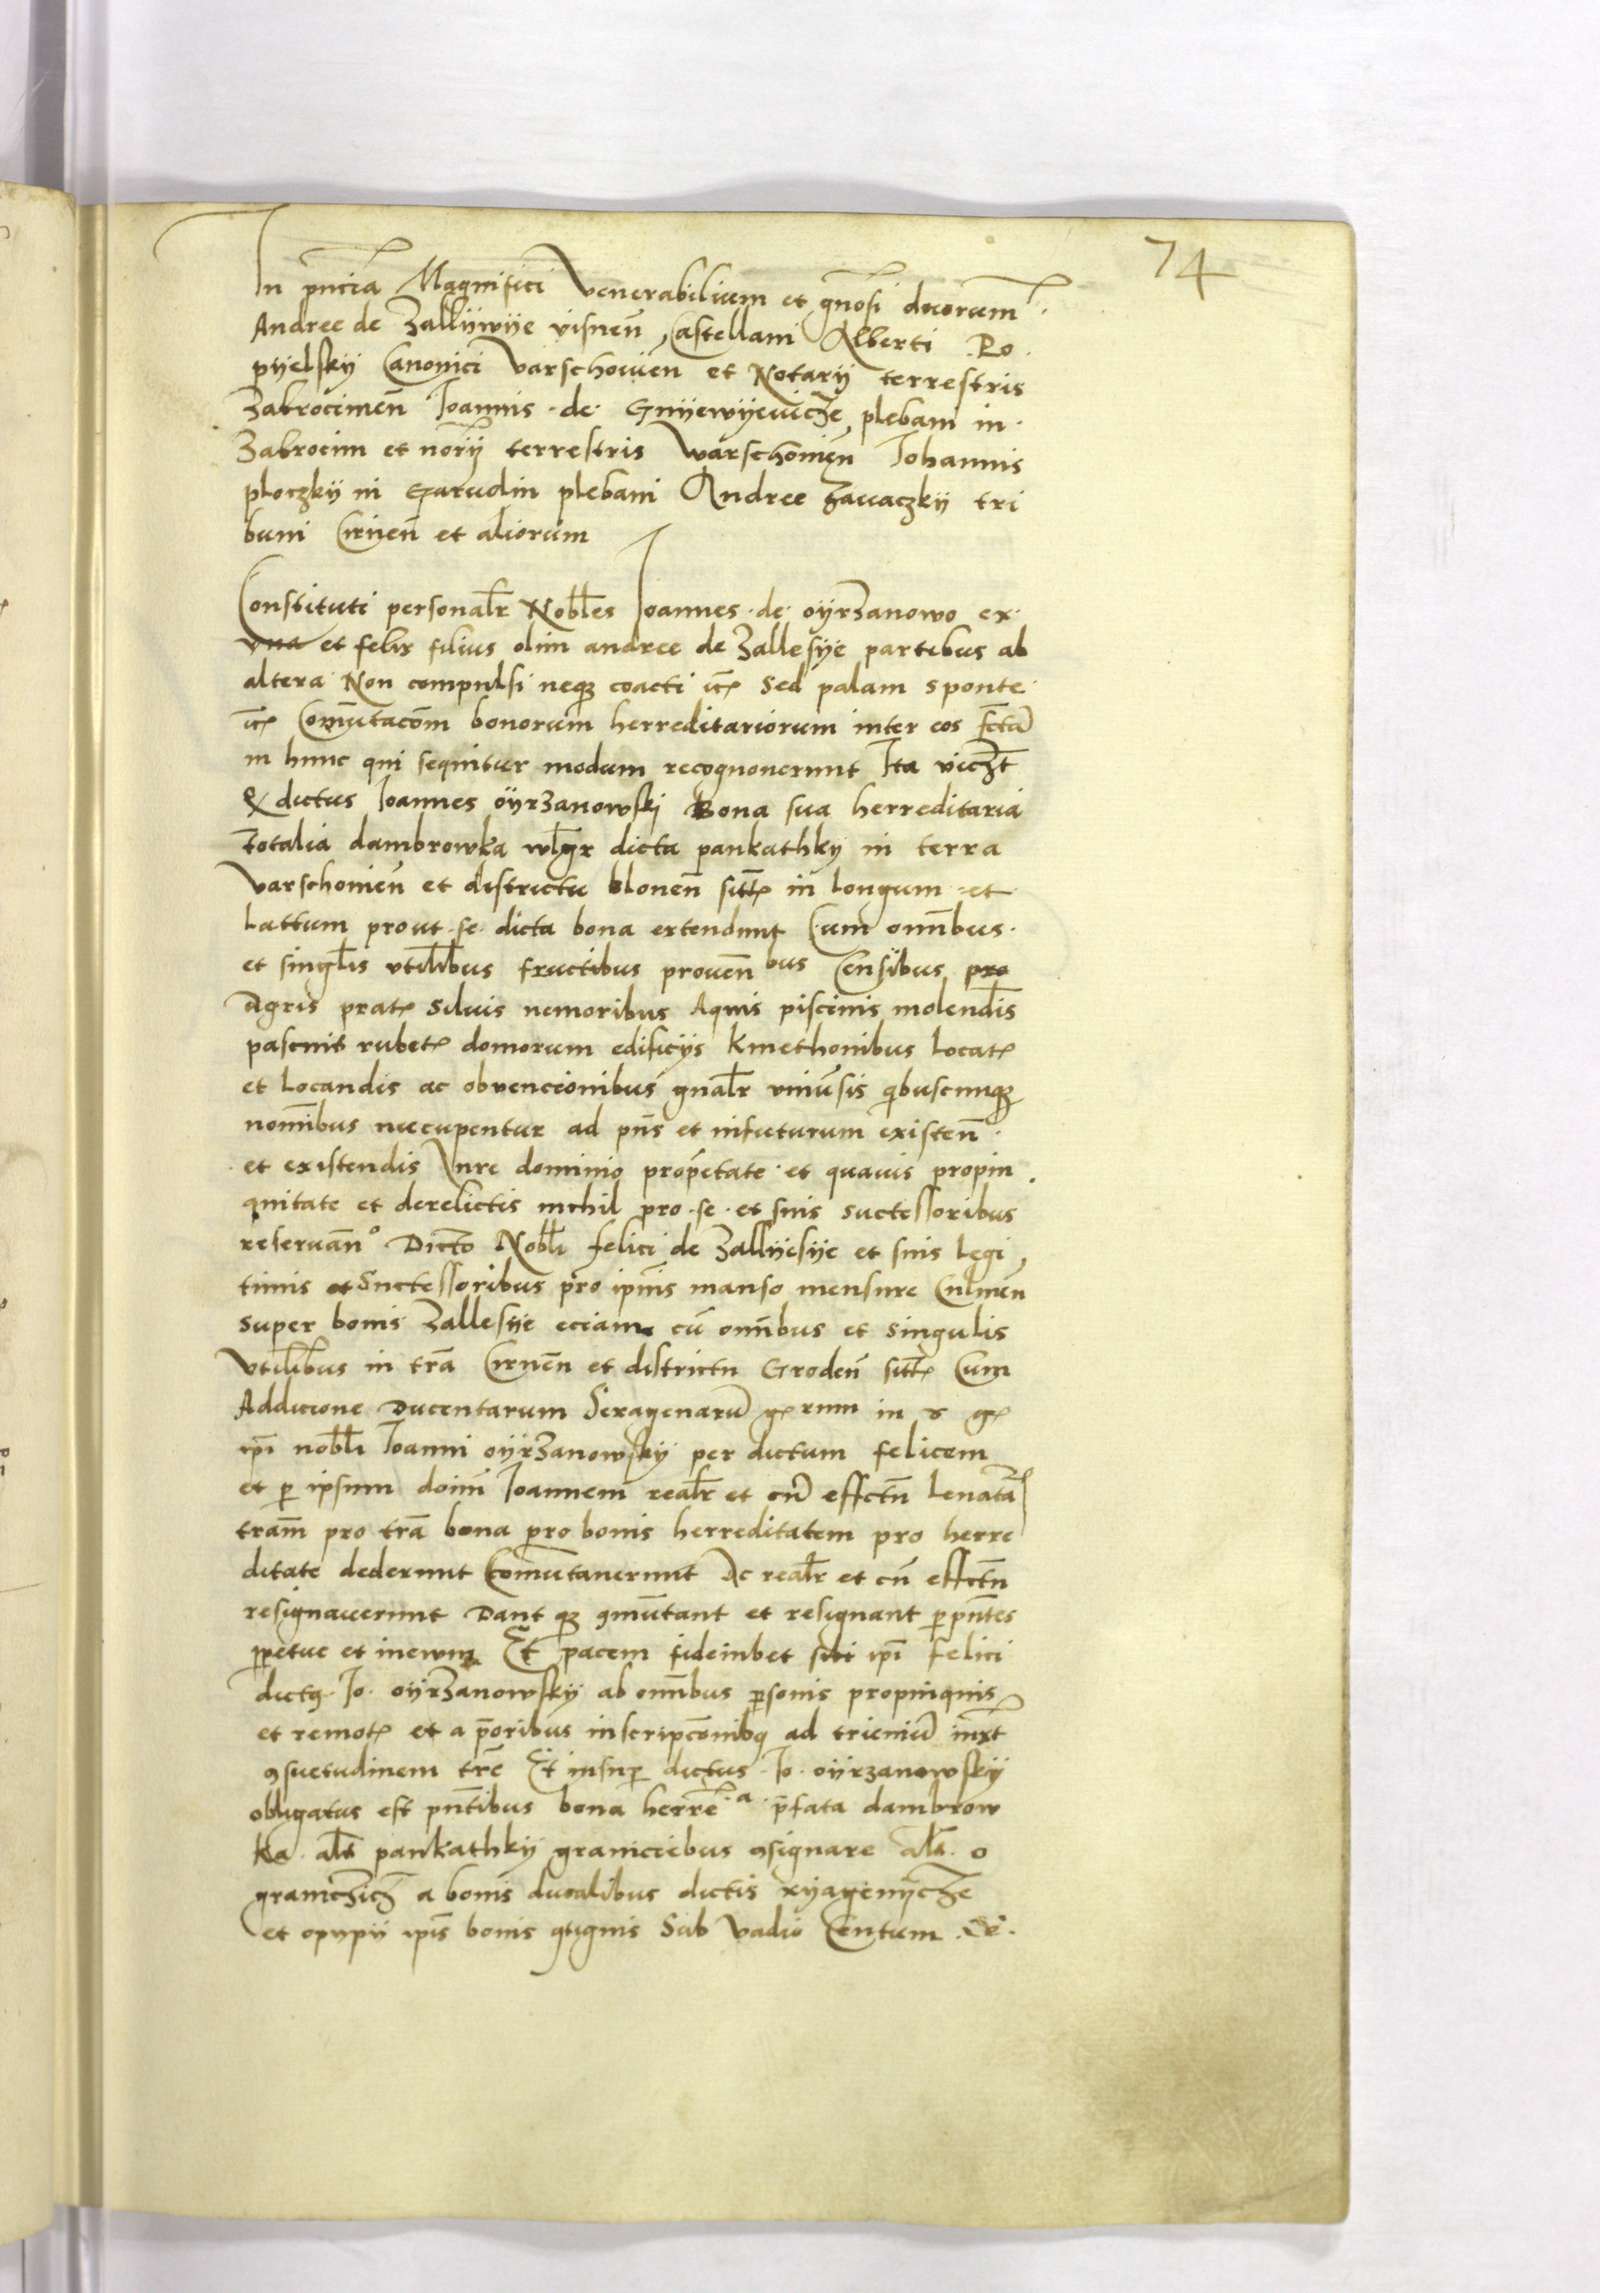 74
In pñcia Magnifici Venerabilium et gñosi dñorum
Andree de Zallywye visneñ Castellani Alberti Po
pyelsky Canonici Varschovien et Notarij terrestris
Zakrocimeñ Joannis de Gnyewyevicze plebani in
Zakrocim et norij terrestris Varschovieñ Johannis
ploczky in Garvolin plebani Andree Zavaczky tri
buni Cirneñ et aliorum
Constituti personalr Nobles Joannes de oyrzanowo ex
una et felix filius olim andree de Zallesye partibus ab
altera Non compulsi neqz coacti etc sed palam sponte
etc Comutacom bonorum herreditariorum inter eos fctã
in hunc qui sequitur modum recognoverunt Ita viczt
Q dictus Joannes oyrzanowski Bona sua herreditaria
totalia dambrowka wlgr dicta pankathky in terra
Varschovieñ et districtu bloneñ sitt in longum et
Lattum prout se dicta bona extendunt Cum omnibus
et singlis vtilibus fructibus proven bus Censibus pro
Agris prat silvis nemoribus Aquis piscinis molendis
pascuis rubet domorum edificijs kmethonibus locat
et locandis ac obvencionibus gnalr universis qbuscunqz
nomibus nucupentur ad pñs et infuturum existeñ
et existendis Iure dominio proprietate et quavis propin
quitate et derelictis nichil pro se et suis suctessoribus
reservañº Dicto Nobli felici de Zallyesye et suis legi
timis et Suctessoribus pro ipsius manso mensure Culmeñ
super bonis Zallesye eciam cũ omnibus et singulis
Vtilibus in trã Cirneñ et districtu Grodeñ sitt Cum
Addicione Ducentarum Sexagenarũ g rum in r g
ipi nobli Joanni oyrzanowsky per dictum felicem
et p ipsum doim Joannem realr et cũ effctu levata
tram pro trã bona pro bonis herreditatem pro herre
ditate dederunt Comutaverunt Ac realr et cũ effctu
resignaverunt Dant qz 9mutant et resignant p pñtes
ppetue et inewm Et pacem fideiubet sibi ipi felici
dict9 Jo oyrzanowsky ab omibus psonis propinquis
et remot et a prioribus inscripconib9 ad trieniũ iuxt
9suetudinem trẽ Et insup dictus Jo oyrzanowsky
obligatus est pñtibus bona herrea pfata dambrow
ka als pankathky graniciebus 9signare als o
granczicz a bonis ducalibus dictis xyagenycze
et opypy ipis bonis 9tiguis Sub Vadio Centum